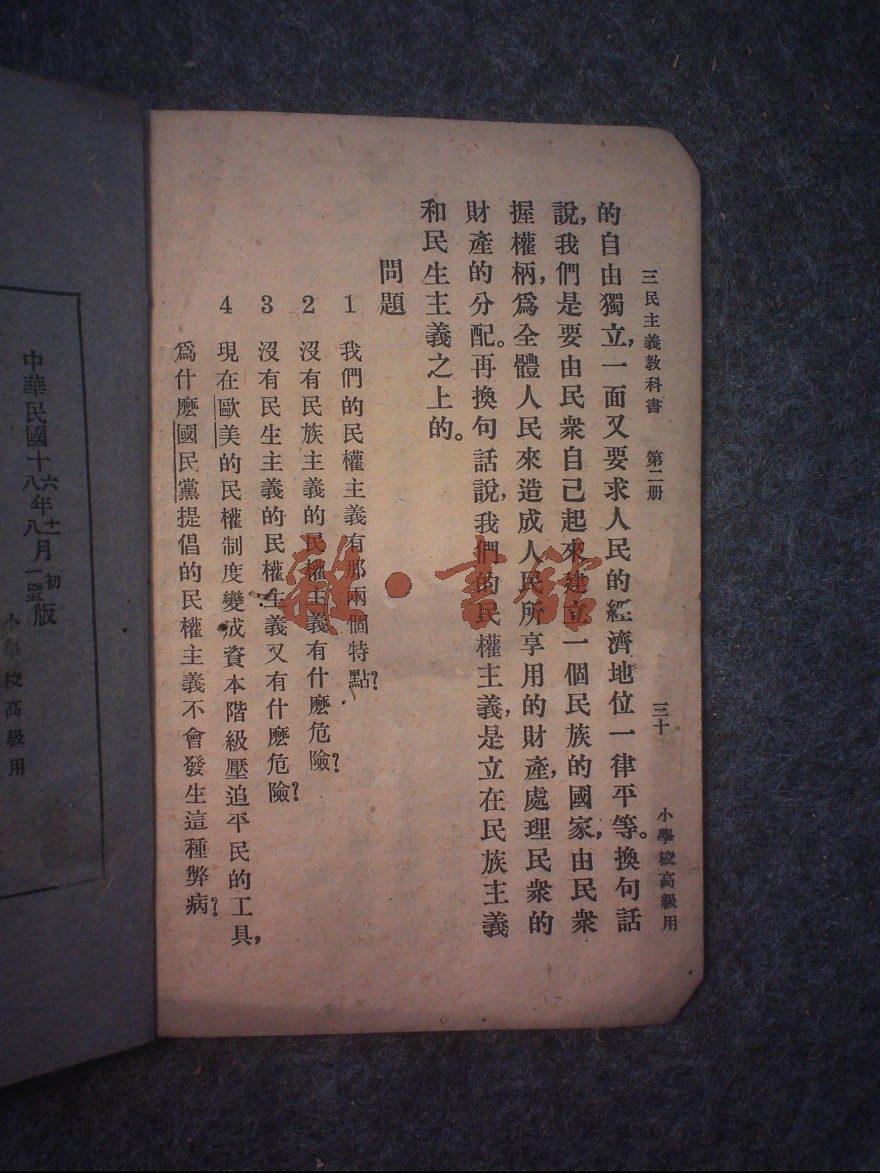 三民主義教科書 第二册 三十 小學校高級用
的自由獨立，一面又要求人民的經濟地位一律平等。換句話
說，我們是要由民衆自己起來建立一個民族的國家，由民衆
握權柄，爲全體人民來造成人民所享用的財產，處理民衆的
財產的分配。再換句話說，我們的民權主義，是立在民族主義
和民生主義之上的。
問題
1 我們的民權主義有那兩個特點？
2 沒有民族主義的民權主義有什麽危險？
3 沒有民生主義的民權主義又有什麽危險？
4 現在歐美的民權制度變成資本階級壓迫平民的工具，
爲什麽國民黨提倡的民權主義不會發生這種弊病？
雜·書館
中華民國十六年十一月初版
八年八月一
小學校高級用